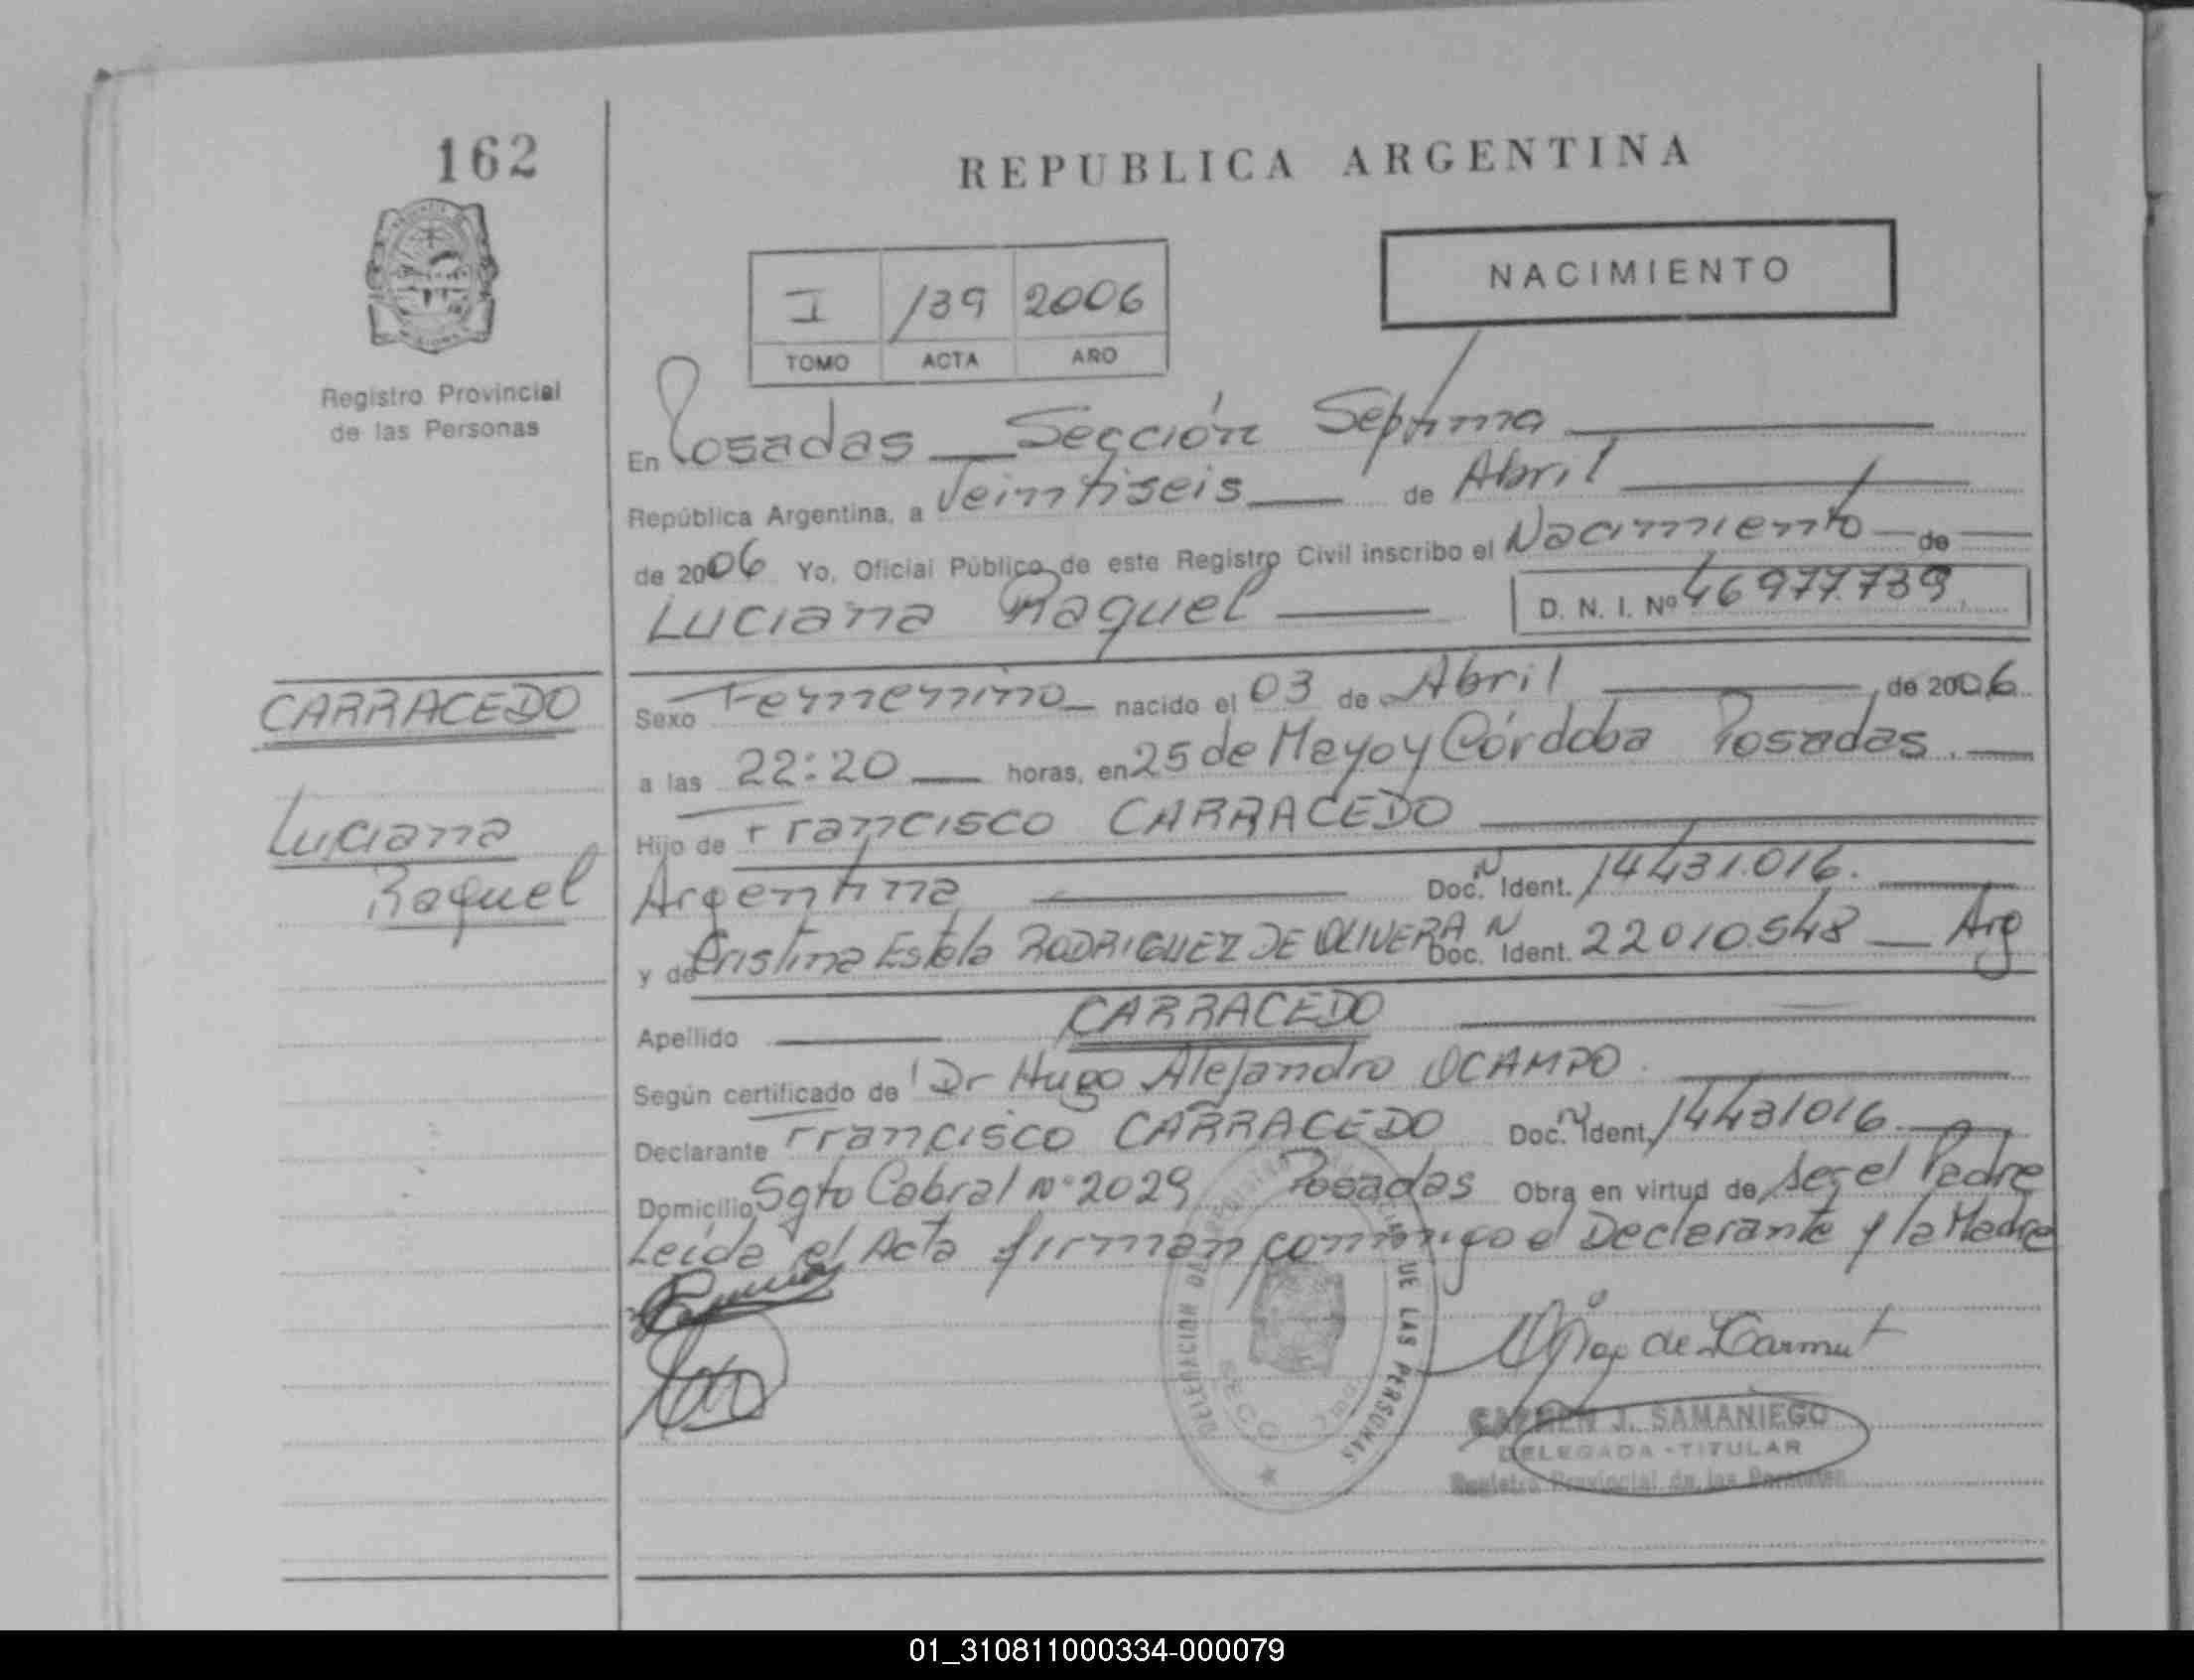 162
REPUBLICA ARGENTINA
NACIMIENTO
I /39 2006
TOMO ACTA AÑO
Registro Provincial
de las Personas
En Posadas Sección Septima
República Argentina, a Veintiseis de Abril
de 2006 Yo, Oficial Público de este Registro Civil inscribo el Nacimiento de
Luciana Raquel D. N. I. Nº 46977.739
CARRACEDO
Luciana
Raquel
Sexo Femenino nacido el 03 de Abril de 2006
a las 22:20 horas, en 25 de Mayo y Córdoba Posadas.
Hijo de Francisco CARRACEDO
Argentina Doc. N Ident. 14431.016.
y de Cristina Estela RODRIGUEZ DE OLIVERA Doc. N Ident. 22010.548 Arg
Apellido CARRACEDO
Según certificado de Dr Hugo Alejandro OCAMPO.
Declarante Francisco CARRACEDO Doc. N Ident. 14431016.
Domicilio Sgto Cabral Nº 2029 Posadas Obra en virtud de ser el Padre
Leida el Acta firman conmigo el Declarante y la Madre
DELEGACION DE LAS PERSONAS
CARMEN J. SAMANIEGO
DELEGADA - TITULAR
Registro Provincial de las Personas
01_310811000334-000079